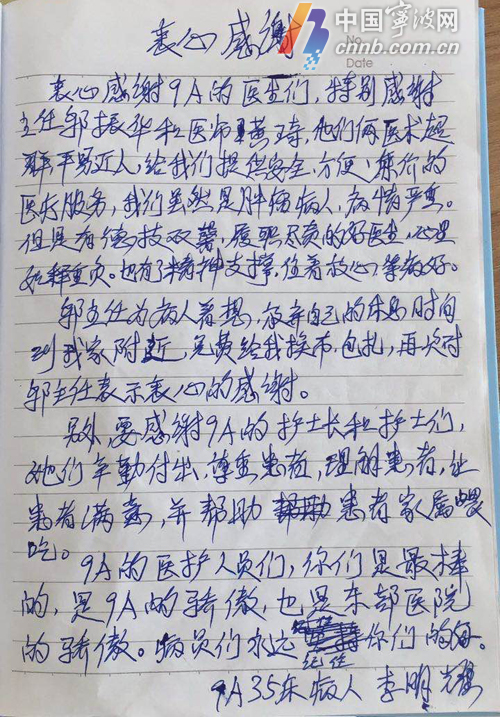 中国宁波网
chnb.com.cn
No.
Date
衷心感谢
衷心感谢9A的医生们，特别感谢
主任郭振华和医师黄琦，他们俩医术超
群，平易近人，给我们提供安全、方便、廉价的
医疗服务，我们虽然是肿瘤病人，病情严重。
但是有德技双馨，履职尽责的好医生，心里
如释重负。也有了精神支撑，住着放心，等病好。
郭主任为病人着想，放弃自己的休息时间
到我家附近，免费给我换布、包扎，再次对
郭主任表示衷心的感谢。
另外，要感谢9A的护士长和护士们，
她们辛勤付出，尊重患者，理解患者，让
患者满意，并帮助患者家属喂
吃。
9A的医护人员们，你们是最棒
的，是9A的骄傲，也是东部医院
的骄傲。病员们永远记住你们的好。
9A 35床病人 李明